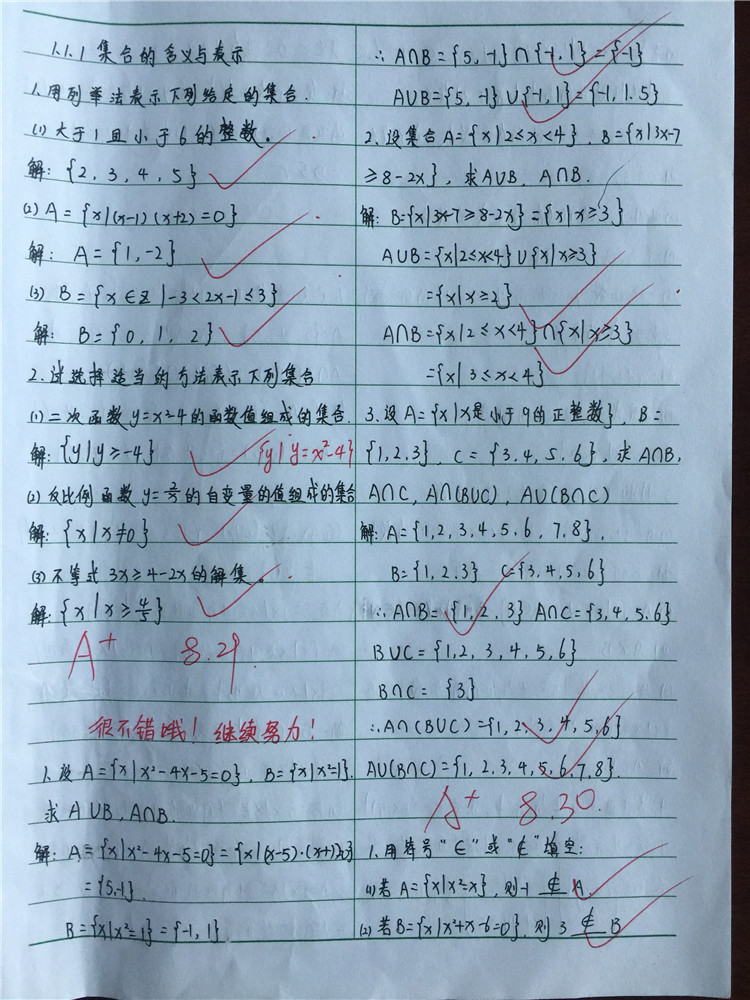 1.1.1 集合的含义与表示
1.用列举法表示下列给定的集合.
(1)大于1且小于6的整数。
解: {2, 3, 4, 5}
(2) A={x|(x-1)(x+2)=0}
解: A={1,-2}
(3) B={x∈Z|-3<2x-1≤3}
解: B={0, 1, 2}
2.试选择适当的方法表示下列集合
(1)二次函数y=x²-4的函数值组成的集合.
解:{y|y≥-4} {y|y=x²-4}
(2)反比例函数y=2/x的自变量的值组成的集合
解:{x|x≠0}
(3)不等式3x≥4-2x的解集。
解:{x|x≥4/5}
A+ 8.29.
很不错哦! 继续努力!
1.设A={x|x²-4x-5=0}, B={x|x²=1}.
求A∪B, A∩B.
解: A={x|x²-4x-5=0}={x|(x-5)·(x+1)=0}
={5,-1}
B={x|x²=1}={-1, 1}
∴A∩B={5, -1}∩{-1, 1}={-1}
A∪B={5, -1}∪{-1, 1}={-1, 1, 5}
2.设集合A={x|2≤x<4}, B={x|3x-7
≥8-2x}, 求A∪B, A∩B.
解: B={x|3x-7≥8-2x}={x|x≥3}
A∪B={x|2≤x<4}∪{x|x≥3}
={x|x≥2}
A∩B={x|2≤x<4}∩{x|x≥3}
={x|3≤x<4}
3.设A={x|x是小于9的正整数}, B=
{1,2,3}, C={3,4,5,6}, 求A∩B,
A∩C, A∩(B∪C), A∪(B∩C)
解: A={1,2,3,4,5,6,7,8},
B={1,2,3} C={3,4,5,6}
∴A∩B={1,2,3} A∩C={3,4,5,6}
B∪C={1,2,3,4,5,6}
B∩C={3}
∴A∩(B∪C)={1,2,3,4,5,6}
A∪(B∩C)={1,2,3,4,5,6,7,8}.
A+ 8.30.
1.用符号“∈”或“∉”填空:
(1)若A={x|x²=x}, 则-1 ∉ A.
(2)若B={x|x²+x-6=0}, 则3 ∉ B